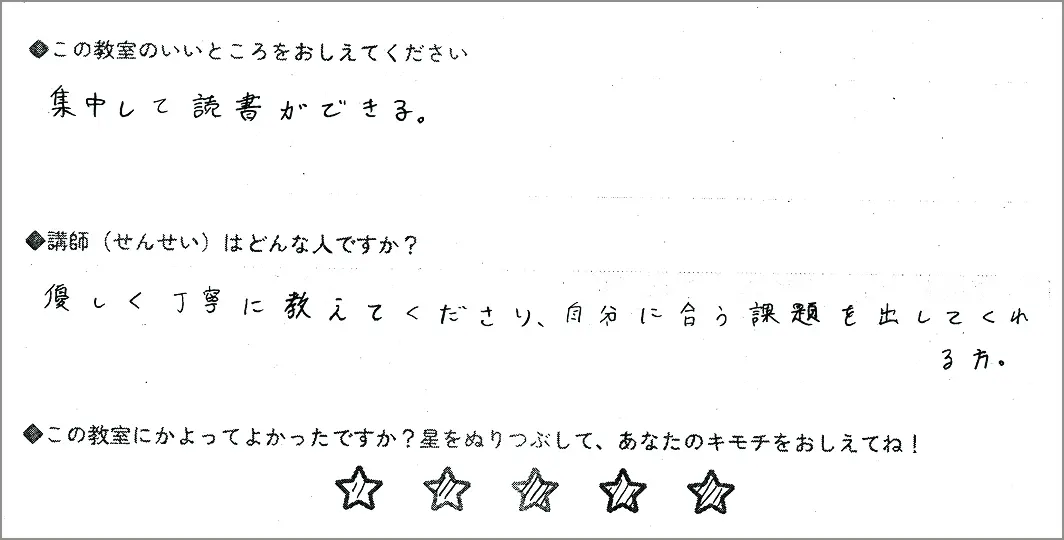 ◆この教室のいいところをおしえてください
集中して読書ができる。
◆講師（せんせい）はどんな人ですか？
優しく丁寧に教えてくださり、自分に合う課題を出してくれ
る方。
◆この教室にかよってよかったですか？星をぬりつぶして、あなたのキモチをおしえてね！